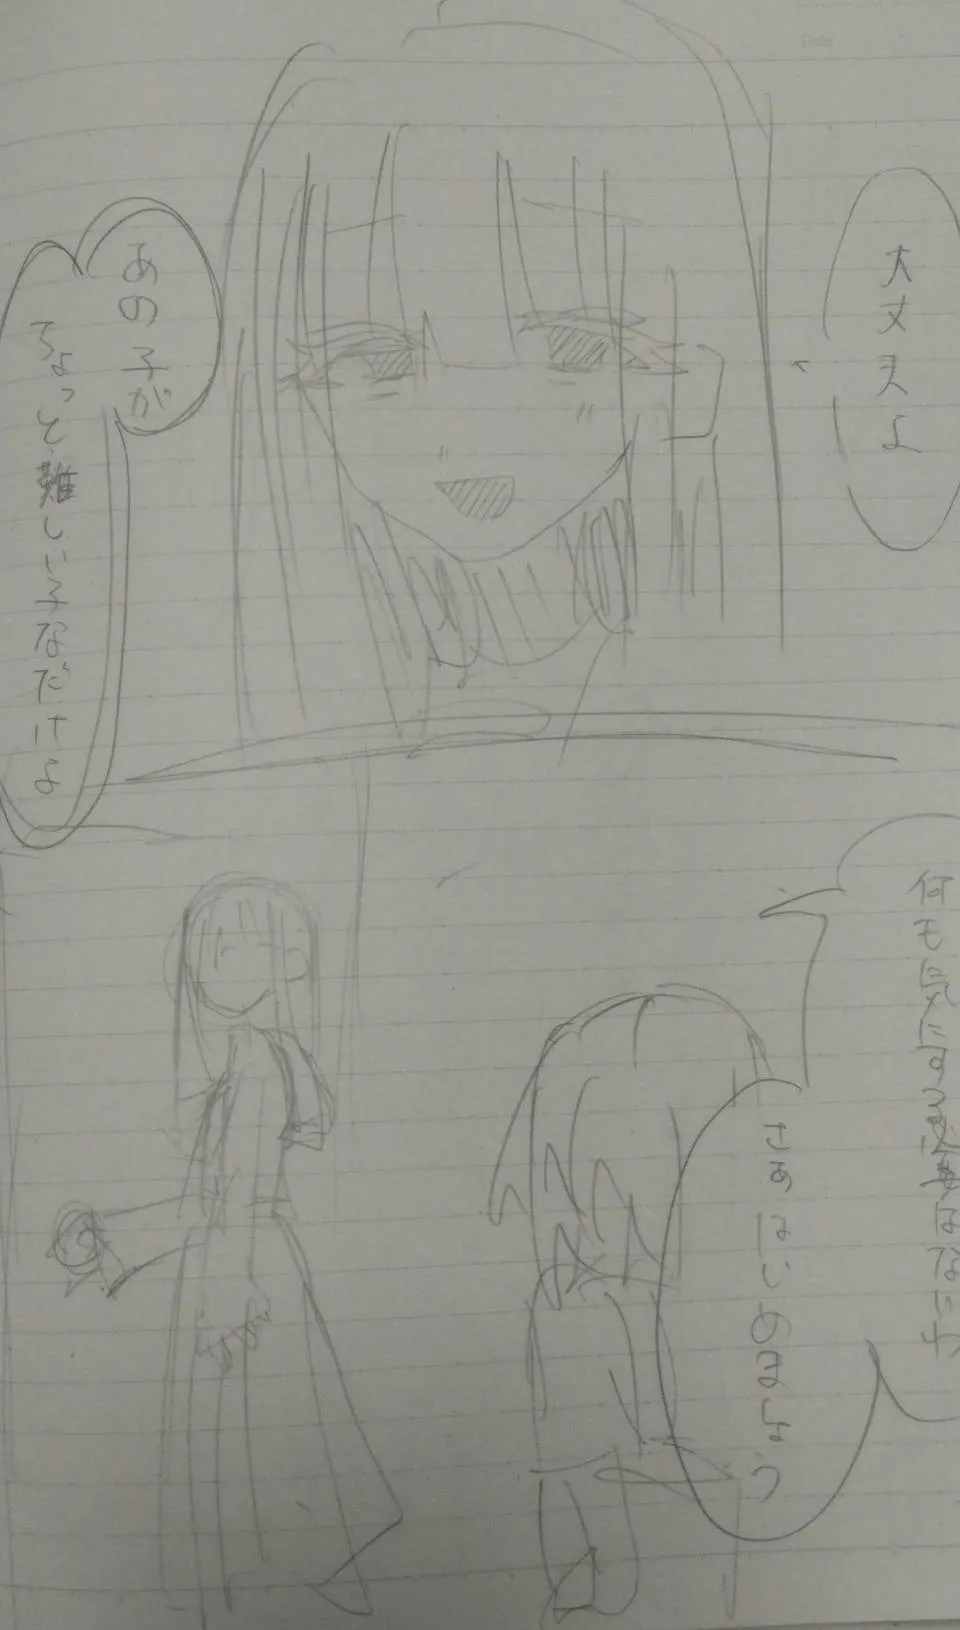 大丈夫よ
あの子が
ちょっと難しい子なだけよ
何も気にする必要はないわ
さあはじめましょう